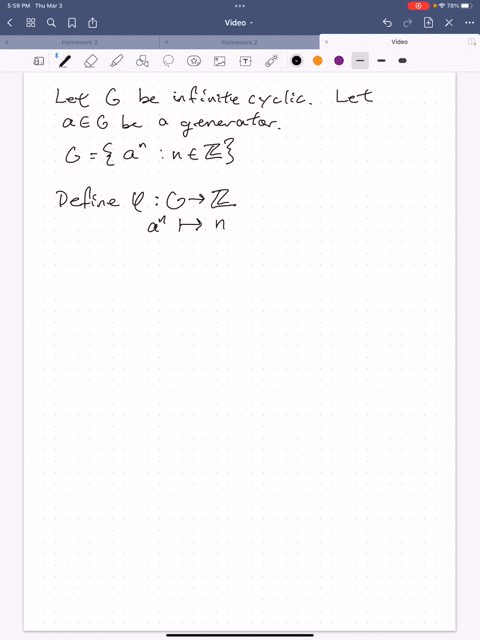 5:59 PM Thu Mar 3
78%
Video
Homework 3
Homework 2
Video
Let G be infinite cyclic. Let
a ∈ G be a generator.
G = { aⁿ : n ∈ ℤ }
Define φ : G → ℤ
aⁿ ↦ n